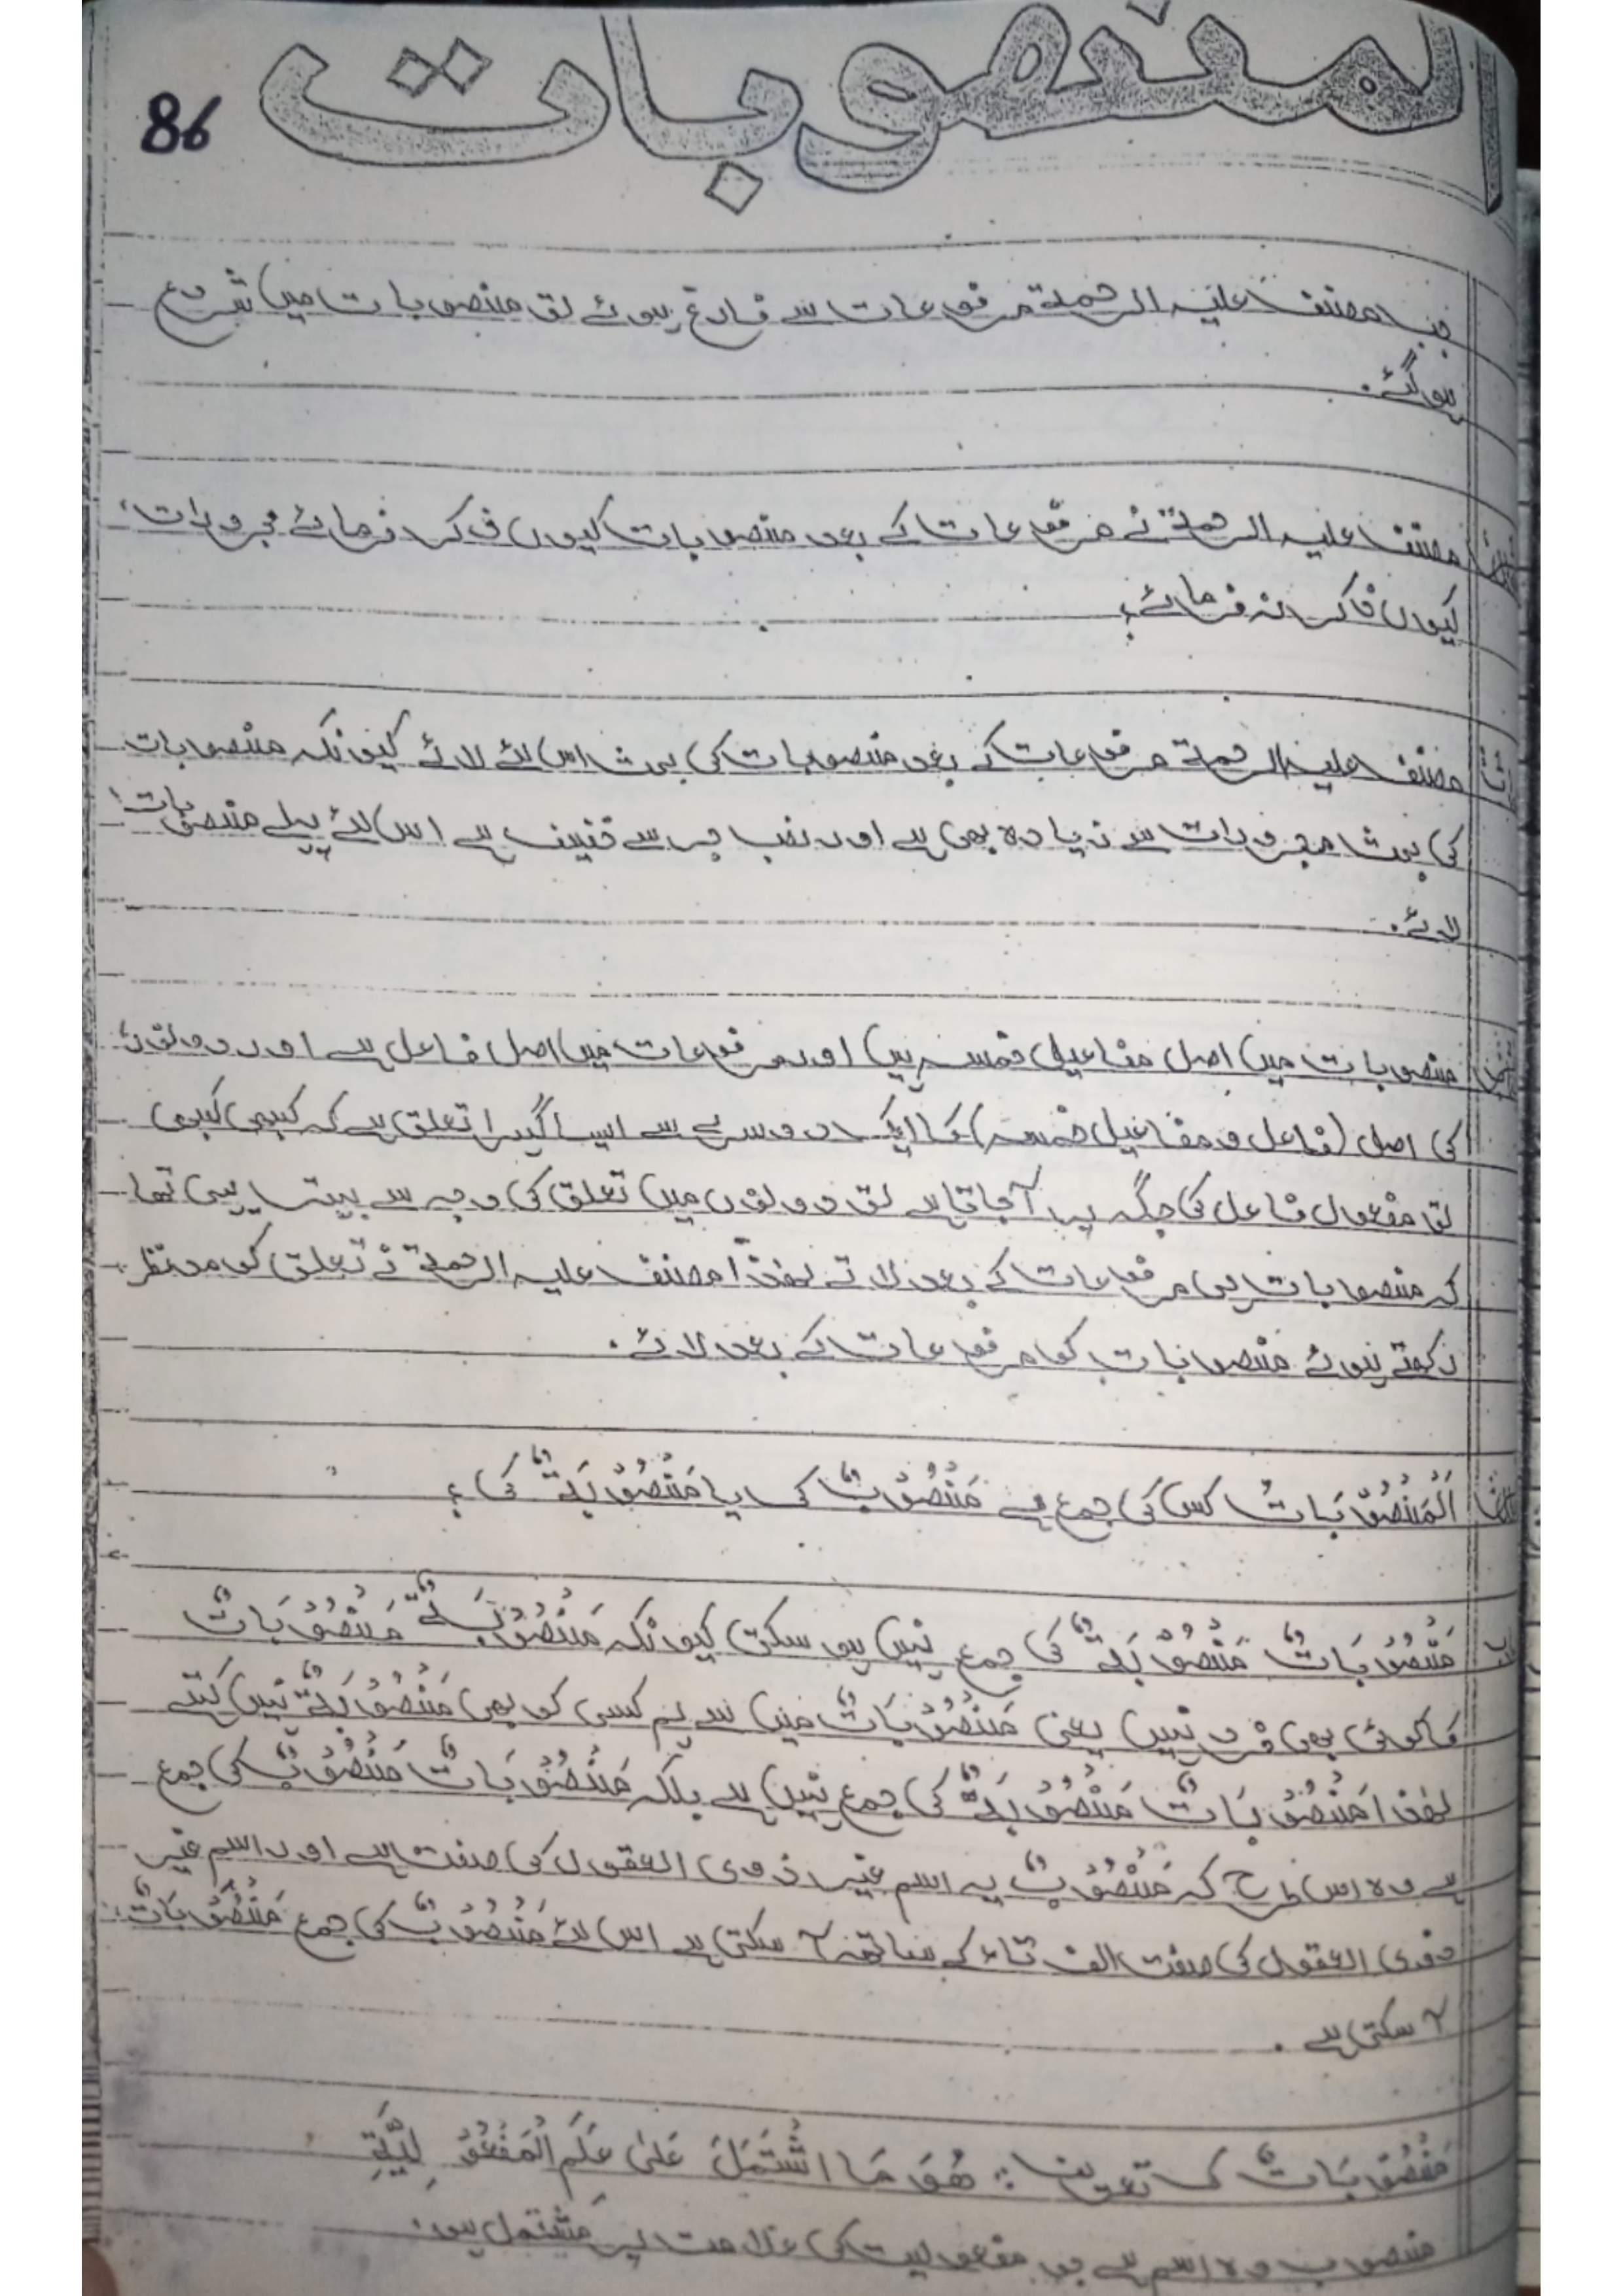 المنصوبات
86
جب مصنف علیہ الرحمۃ مرفوعات سے فارغ ہوئے تو منصوبات میں شروع
ہوگئے۔
مصنف علیہ الرحمۃ نے مرفوعات کے بعد منصوبات کیوں ذکر فرمائے مجرورات
کیوں ذکر نہ فرمائے؟
مصنف علیہ الرحمۃ مرفوعات کے بعد منصوبات کی بحث اس لئے لائے کیونکہ منصوبات
کی بحث مجرورات سے زیادہ بھی ہے اور نصب جر سے خفیف ہے اس لئے پہلے منصوبات
لائے۔
منصوبات میں اصل مفاعیل خمسہ ہیں اور مرفوعات میں اصل فاعل ہے اور دونوں
کی اصل (فاعل و مفاعیل خمسہ) کا ایک دوسرے سے ایسا گہرا تعلق ہے کہ کبھی کبھی
تو مفعول فاعل کی جگہ پہ آجاتا ہے تو دونوں میں تعلق کی وجہ سے بہتر یہی تھا
کہ منصوبات بھی مرفوعات کے بعد لاتے لھذا مصنف علیہ الرحمۃ نے تعلق کو مدنظر
رکھتے ہوئے منصوبات کو مرفوعات کے بعد لائے۔
اَلْمَنْصُوْبَاتُ کس کی جمع ہے مَنْصُوْبٌ کی یا مَنْصُوْبَۃٌ کی؟
مَنْصُوْبَاتٌ مَنْصُوْبَۃٌ کی جمع نہیں ہو سکتی کیونکہ مَنْصُوْبَۃٌ مَنْصُوْبَاتٌ
کا کوئی بھی فرد نہیں یعنی مَنْصُوْبَاتٌ میں سے ہم کسی کو بھی مَنْصُوْبَۃٌ نہیں کہتے
لھذا مَنْصُوْبَاتٌ مَنْصُوْبَۃٌ کی جمع نہیں ہے بلکہ مَنْصُوْبَاتٌ مَنْصُوْبٌ کی جمع
ہے وہ اس طرح کہ مَنْصُوْبٌ یہ اسم غیر ذوی العقول کی صفت ہے اور اسم غیر
ذوی العقول کی صفت الف تاء کے ساتھ آ سکتی ہے اس لئے مَنْصُوْبٌ کی جمع مَنْصُوْبَاتٌ
آ سکتی ہے۔
مَنْصُوْبَاتٌ کی تعریف: ھُوَ مَا اشْتَمَلَ عَلیٰ عَلَمِ الْمَفْعُوْلِیَّۃِ
منصوب وہ اسم ہے جو مفعولیت کی علامت پر مشتمل ہو۔